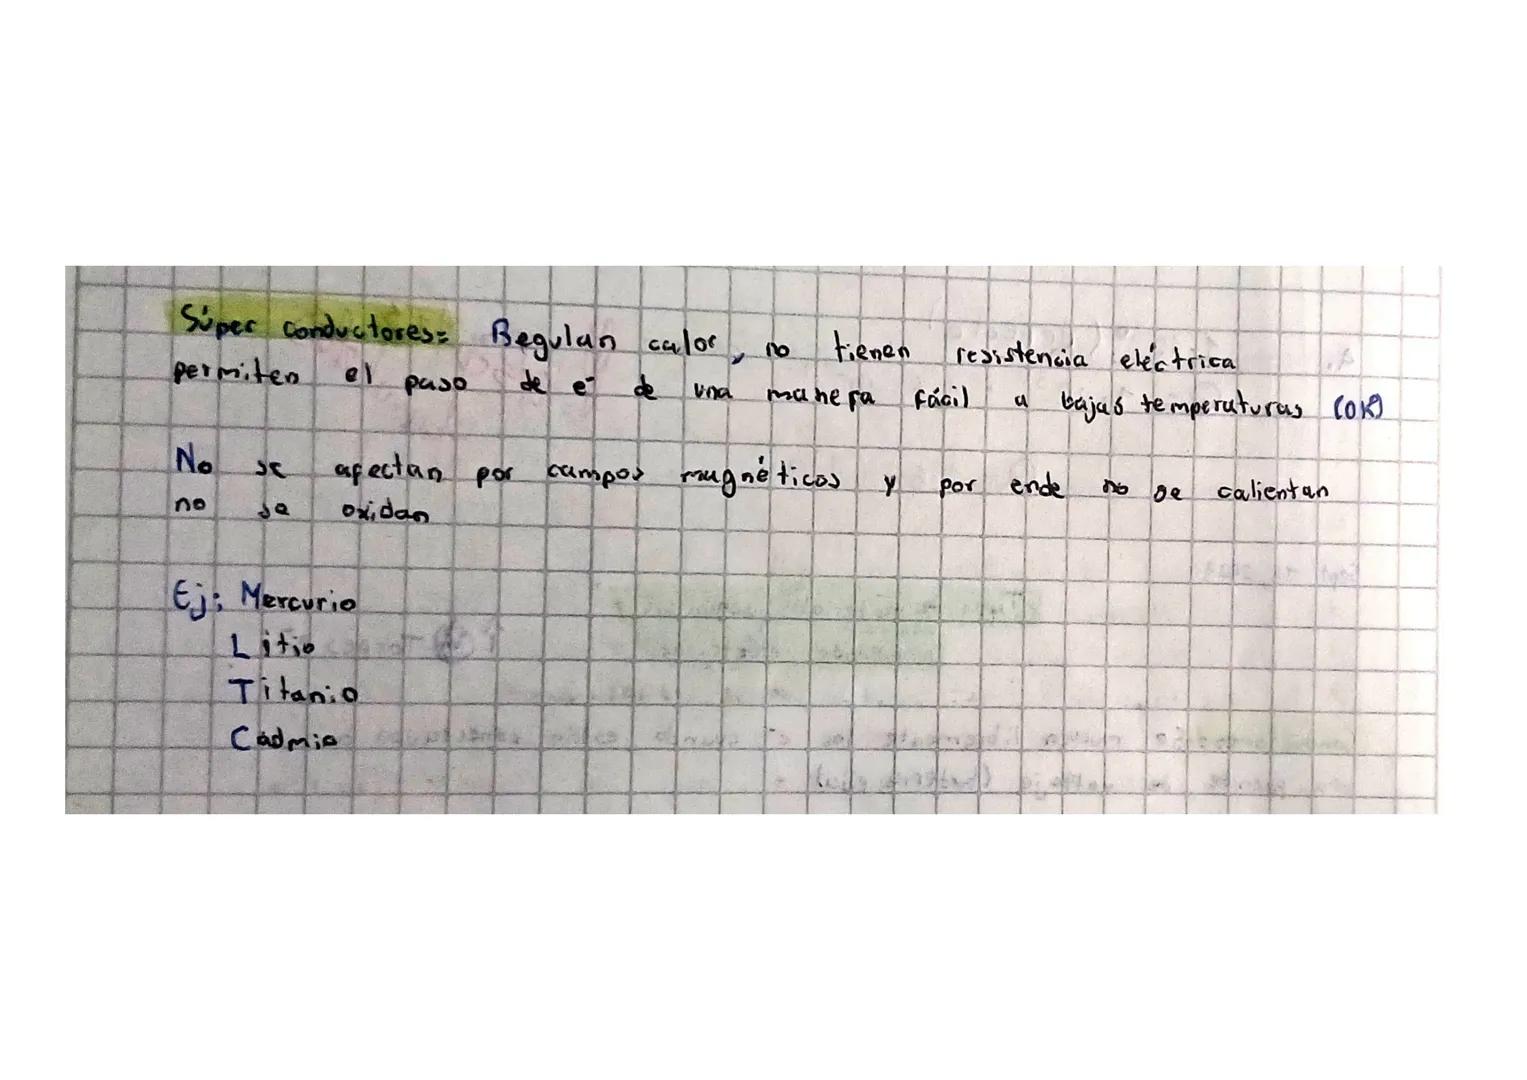 Súper conductores= Regulan calor, no tienen resistencia eléctrica
permiten el paso de e⁻ de una manera fácil a bajas temperaturas (0K)
No se afectan por campos magnéticos y por ende no se calientan
no se oxidan
Ej: Mercurio
Litio
Titanio
Cadmio